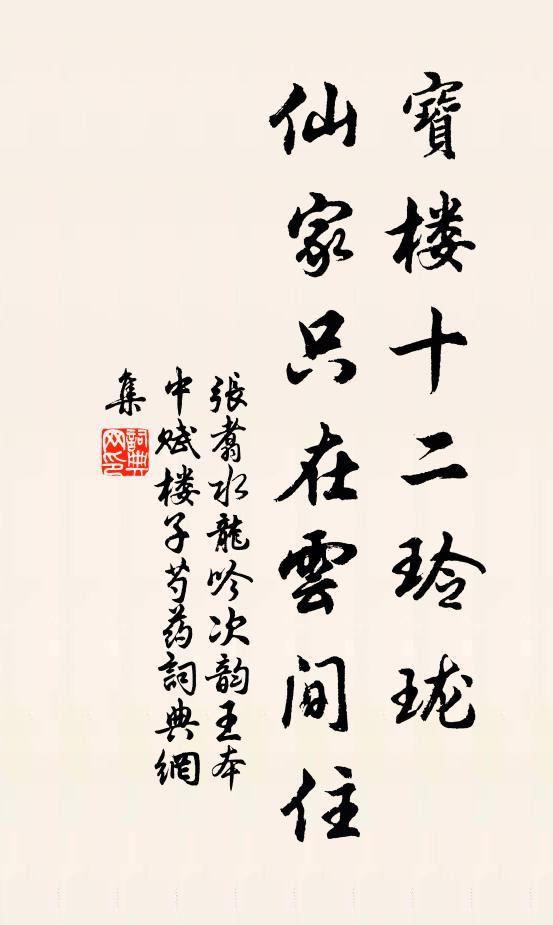 寶楼十二玲珑
仙家只在雲間住
張翥水龍吟次韵王本
中赋楼子芍药詞典網
集
詞典
网印